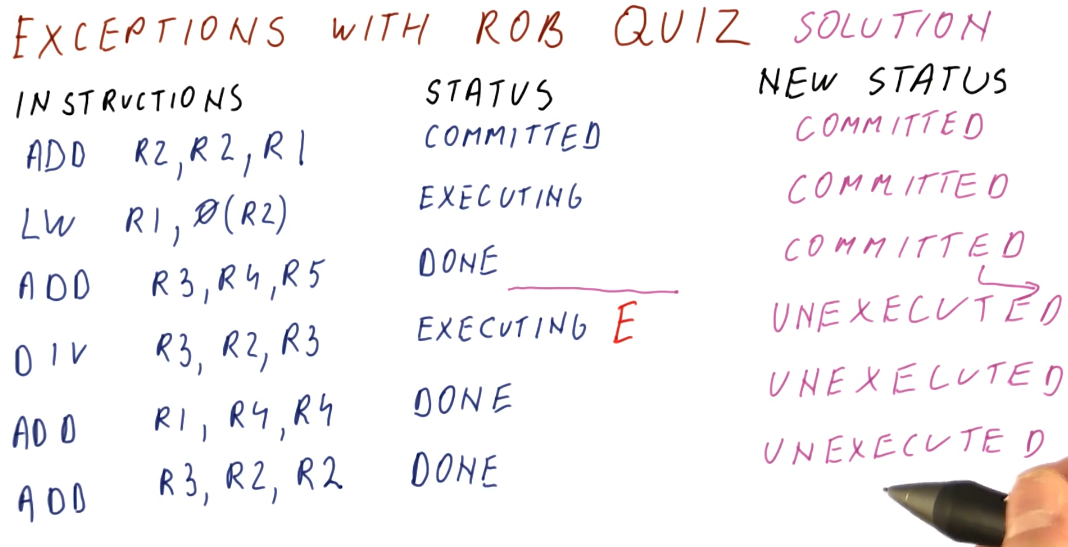 EXCEPTIONS WITH ROB QUIZ SOLUTION
INSTRUCTIONS STATUS NEW STATUS
ADD R2, R2, R1 COMMITTED COMMITTED
LW R1, 0(R2) EXECUTING COMMITTED
ADD R3, R4, R5 DONE COMMITTED
DIV R3, R2, R3 EXECUTING E UNEXECUTED
ADD R1, R4, R4 DONE UNEXECUTED
ADD R3, R2, R2 DONE UNEXECUTED